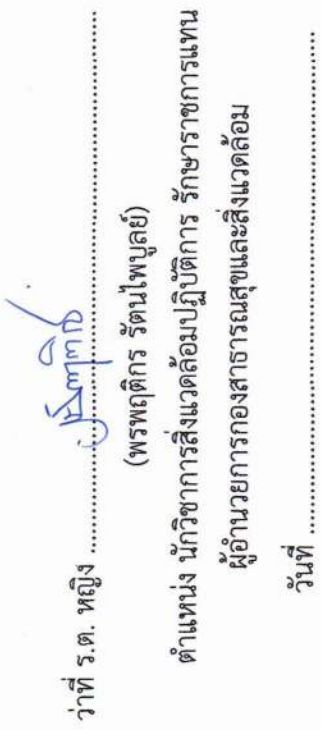 ว่าที่ ร.ต. หญิง ........................................................................
(พรพฤติกร รัตนไพบูลย์)
ตำแหน่ง นักวิชาการสิ่งแวดล้อมปฏิบัติการ รักษาราชการแทน
ผู้อำนวยการกองสาธารณสุขและสิ่งแวดล้อม
วันที่ ........................................................................